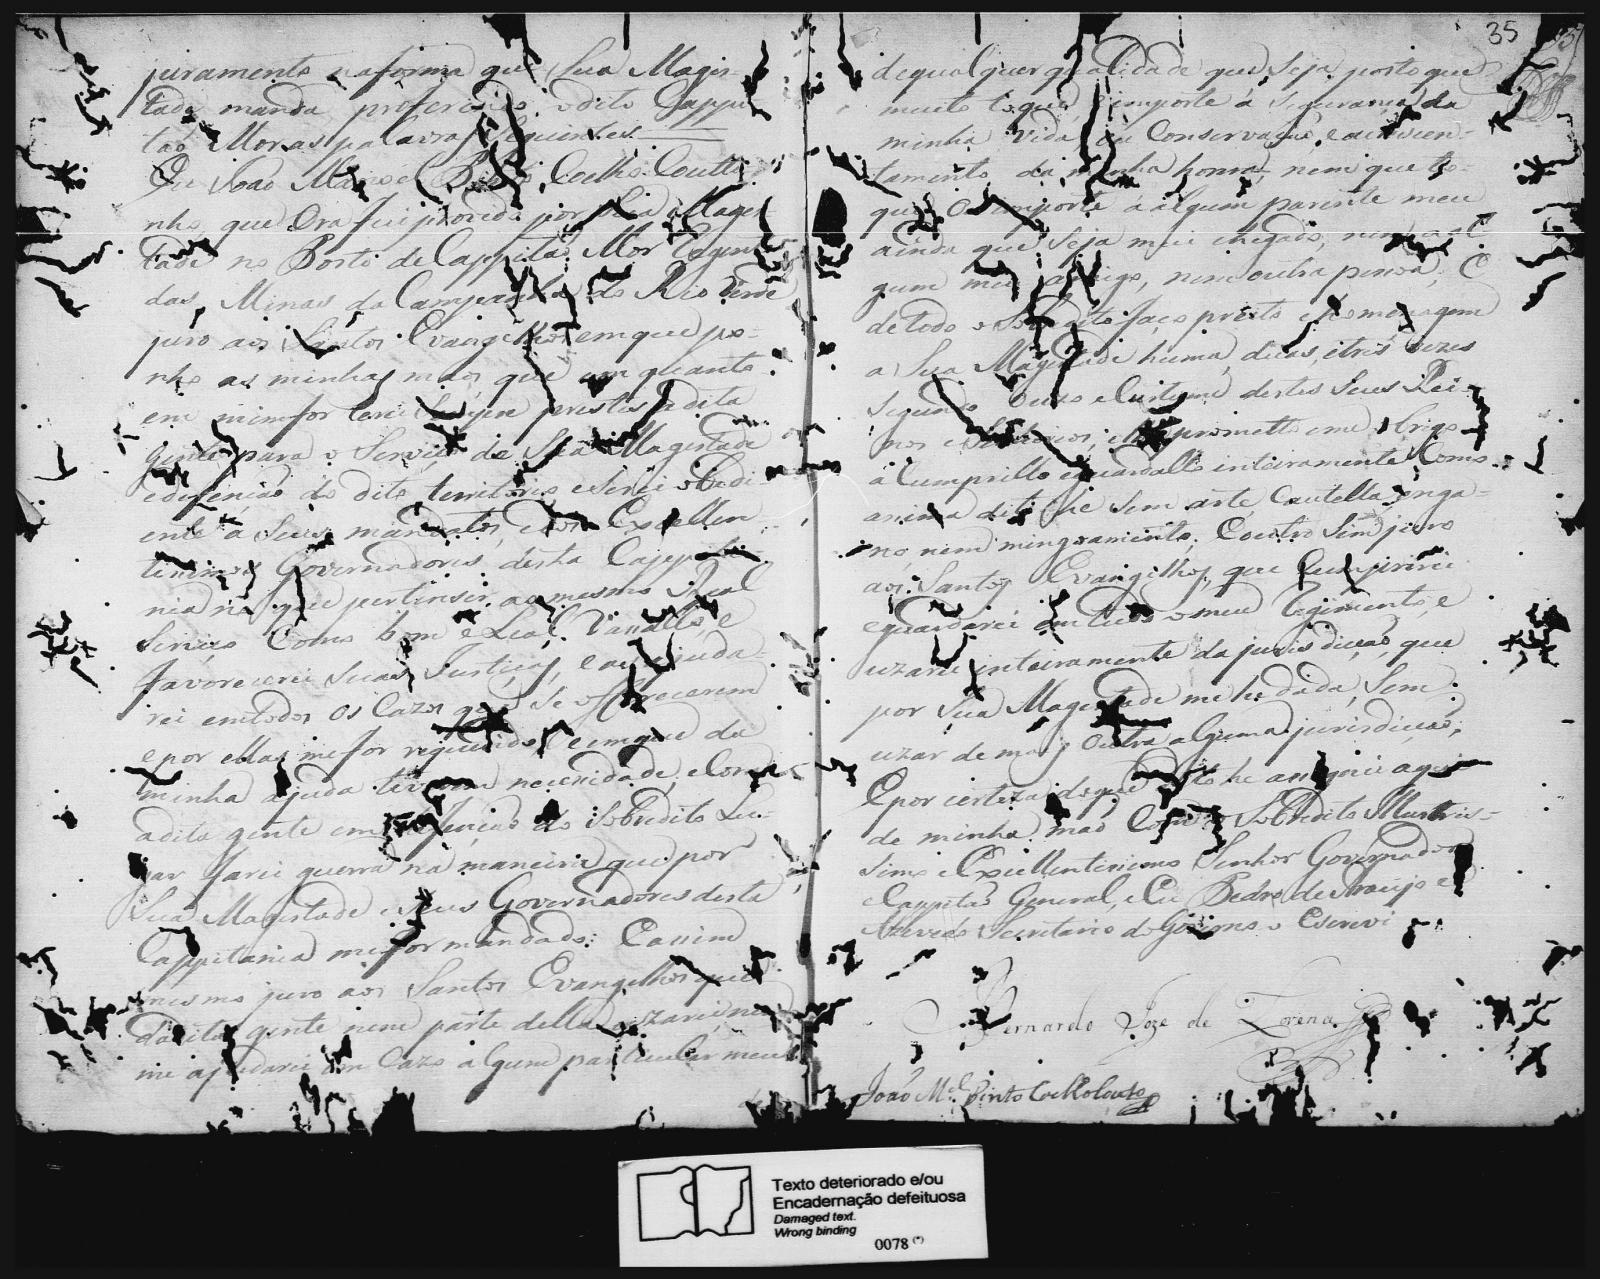 juramento na forma que Sua Mages-
tade manda proferindo o dito Cappi
tão Mor as palavras Seguintes
Eu João Manoel Pinto Coelho Couti
nho, que Ora fui provido por Sua Mages
tade no Posto de Cappitão Mor
das Minas da Campanha do Rio Verde
juro aos Santos Evangelhos em que po-
nho as minhas mãos que em quanto
em mim for terei Sempre prestes a dita
gente para o Serviço de Sua Magestade
e defença do dito territorio e Serei obedi
ente a Seus mandatos, e aos Excellen
tissimos Governadores desta Cappita
nia no que pertenser ao mesmo Real
Serviço Como bom e Leal Vassallo, e
favorecerei Suas Justiças, e as ajuda-
rei em todos Os Cazos que Se offerecerem
e por ellas me for requerido e em que da
minha ajuda tiverem necessidade, e Com
a dita gente em defença do Sobredito Lu-
gar farei guerra na maneira que por
Sua Magestade e Seus Governadores desta
Cappitania me for mandado: E assim
mesmo juro aos Santos Evangelhos que
da dita gente nem parte della uzarei nem
me ajudarei em Cazo algum particular meu
35
de qual quer qualidade que Seja posto que
muito toque, e importe á Segurança da
minha Vida, ou Conservação, e acresсen-
tamento da minha honra, nem que to-
que Ou importe a algum parente meu
ainda que Seja mui chegado, nem a al-
gum meu amigo, nem outra pessoa; E
de todo o Sobredito faço preito e homenagem
a Sua Magestade huma, duas, e tres vezes
Segundo Ouzo e Custume destes Seus Rei-
nos e Senhorios, e lhe prometto e me obrigo
a Cumprillo e guardallo inteiramente Como
asima dito he Sem arte, Cautella, enga-
no nem mingoamento; E outro Sim juro
aos Santos Evangelhos, que Cumprirei
e guardarei em tudo o meu Regimento, e
uzarei inteiramente da jurisdicção, que
por Sua Magestade me he dada, Sem
uzar de mais Outra alguma jurisdicção;
E por certeza de que isto he assignei aqui
de minha mão Com o Sobredito Illustris-
simo e Excellentissimo Senhor Governador
e Cappitão General, e Eu Pedro de Araujo e
Azevedo Secretario do Governo o Escrevi
Bernardo Joze de Lorena
João Ml. Pinto Coelho Couto
Texto deteriorado e/ou
Encadernação defeituosa
Damaged text.
Wrong binding
0078 (*)